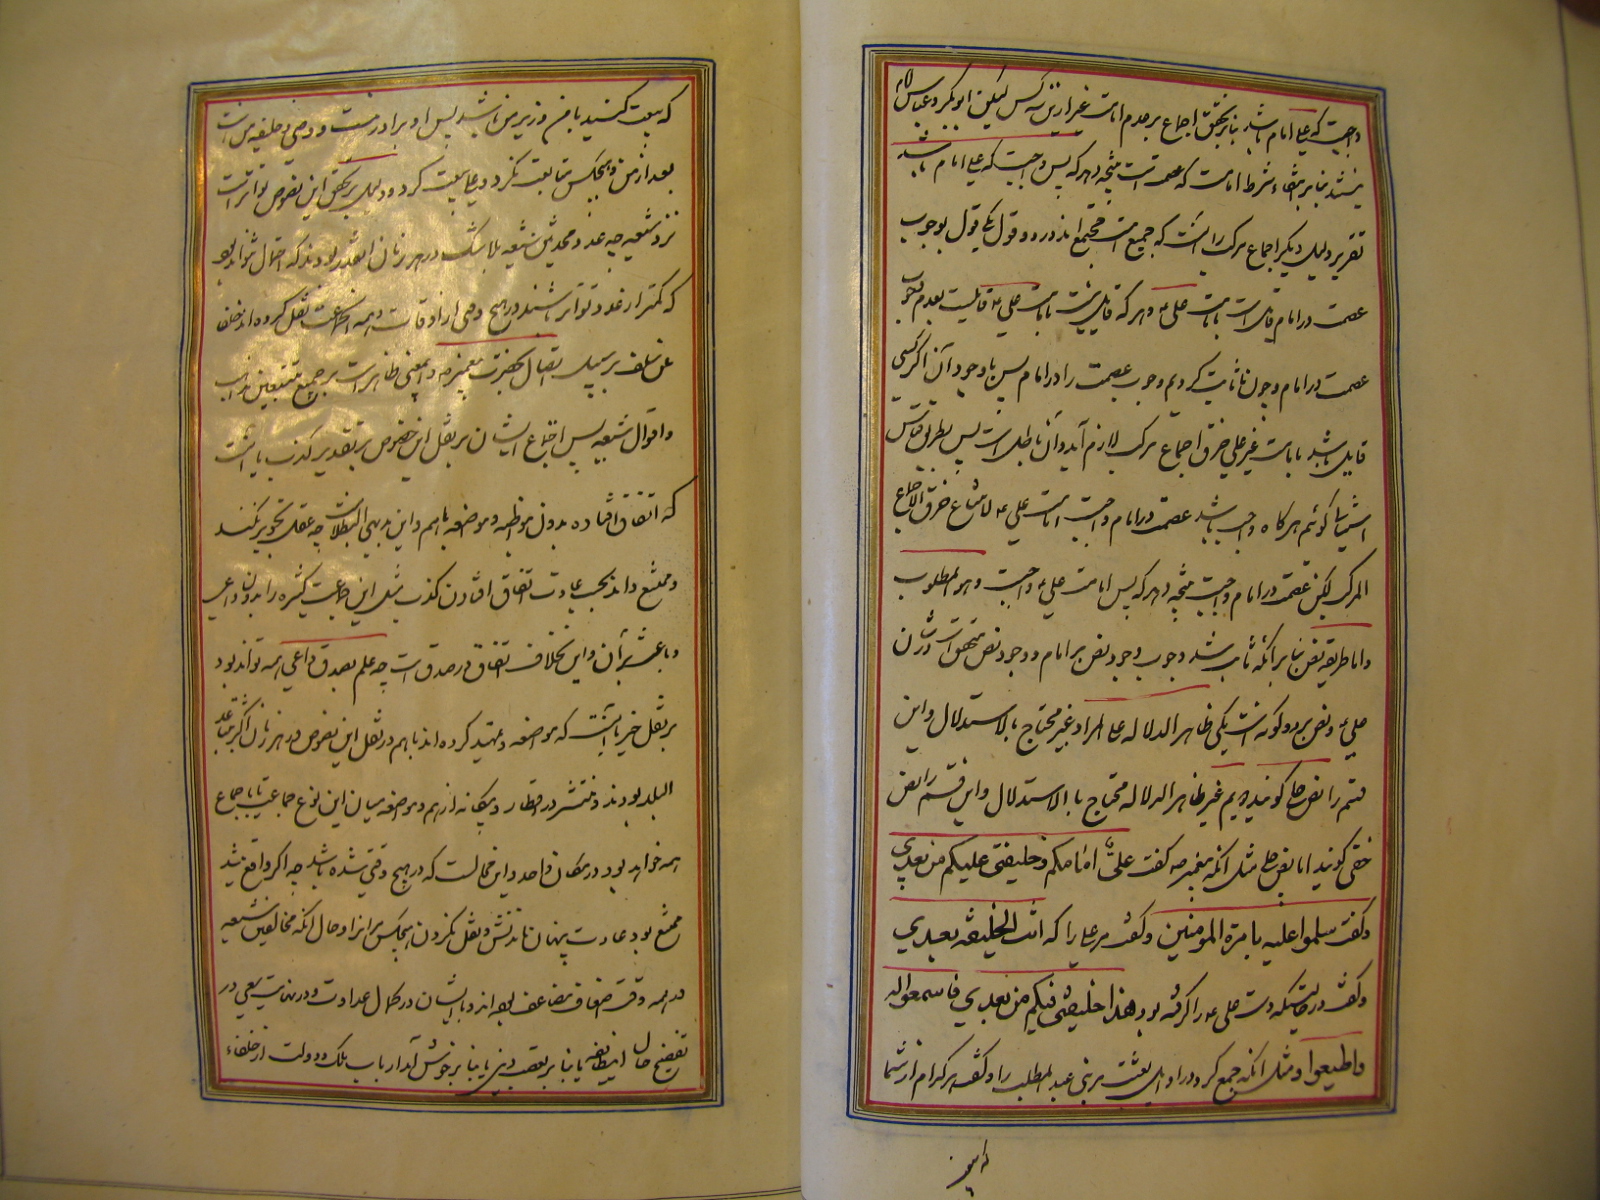 واجبست که علی امام باشد بنابر تحقق اجماع بر عدم امامت غیر ازین سه کس لیکن ابوبکر و عباس امام
نیستند بنابر انتفاء شرط امامت که عصمت است نتیجه دهد که پس واجبست که علی امام باشد
تقریر دلیل دیگر اجماع مرکب را آنست که جمیع امت مجتمع اند در دو قول یکی قول بوجوب
عصمت در امام قایل است بامامت علی ع و هر که قایل نیست بامامت علی ع قایلست بعدم وجوب
عصمت در امام و چون ما ثابت کردیم وجوب عصمت را در امام پس با وجود آن اگر کسی
قایل باشد بامامت غیر علی خرق اجماع مرکب لازم آید و آن باطل است پس بطریق قیاس
استثنایی گوئیم هرگاه واجب باشد عصمت در امام واجبست امامت علی ع لامتناع خرق الاجماع
المرکب لیکن عصمت در امام واجبست نتیجه دهد که پس امامت علی ع واجبست و هو المطلوب
و اما طریقه نص بنابر آنکه ثابت شد وجوب وجود نص بر امام و وجود نص متحقق است در شان
علی ع و نص بر دو گونه است یکی ظاهر الدلاله علی المراد و غیر محتاج بالاستدلال و این
قسم را نص جلی گویند دویم غیر ظاهر الدلاله محتاج بالاستدلال و این قسم را نص
خفی گویند اما نص جلی مثل آنکه پیغمبر ص گفت علیٌّ امامکم و خلیفتی علیکم من بعدی
و گفت سلموا علیه بامرة المومنین و گفت مر علی را که انت الخلیفه بعدی
و گفت در حالتیکه دست علی ع را گرفته بود هذا خلیفتی فیکم من بعدی فاسمعوا له
و اطیعوا و مثل آنکه جمع کرد در اوایل بعثت مر بنی عبد المطلب را و گفت هر کدام از شما
که بیعت
که بیعت کنید با من وزیر من باشد پس او برادر منست و وصی و خلیفه من است
بعد از من و هیچکس متابعت نکرد و علی بیعت کرد و دلیل بر تحقق این نصوص تواتر است
نزد شیعه چه عدد محدثین شیعه بلا شک در هر زمان آنقدر بودند که احتمال نتواند بود
که کمتر از عدد تواتر باشند در هیچ وقتی از اوقات و همه این جماعت نقل کرده اند خلفا
عن سلف بر سبیل اتصال بحضرت پیغمبر ص و این معنی ظاهر است بر جمیع متتبعین مذاهب
و اقوال شیعه پس اجتماع ایشان بر نقل این نصوص بر تقدیر کذب یا آنست
که اتفاق افتاده بدون مواطئه و مواضعه باهم و این بدیهی البطلانست چه عقل تجویز نکند
و ممتنع داند بحسب عادت اتفاق افتادن کذب مثل این جماعت کثیره را بدون داعی
و باعثی بر آن و این بخلاف اتفاق در صدق است چه علم بصدق داعی همه تواند بود
بر نقل خبر یا آنست که مواضعه و تمهید کرده اند باهم در نقل این نصوص در هر زمان اکثر متباعد
البلد بودند و منتشر در اقطار و بیگانه از هم و مواضعه میان این نوع جماعت یا باجتماع
همه خواهد بود در مکان واحد و این محالست که در هیچ وقتی شده باشد چه اگر واقع میشد
ممتنع بود عادت پنهان ماندنش و نقل نکردن هیچکس مر آنرا و حال آنکه مخالفین شیعه
در همه وقت اضعاف مضاعف بوده اند و با ایشان در کمال عداوت و در نهایت سعی در
تفضیح حال این طائفه یا بنابر تعصب دینی یا بنابر خوش آمد ارباب ملک و دولت از خلفاء